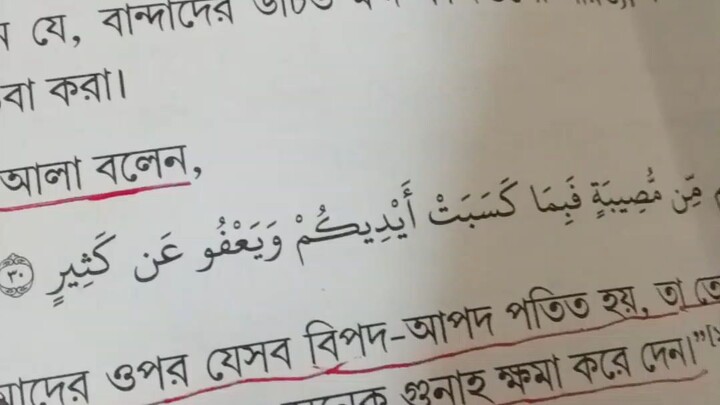 যে, বান্দাদের উচিত
করা।
আলা বলেন,
مِّن مُّصِيبَةٍ فَبِمَا كَسَبَتْ أَيْدِيكُمْ وَيَعْفُو عَن كَثِيرٍ ۝٣٠
ওপর যেসব বিপদ-আপদ পতিত হয়, তা
গুনাহ ক্ষমা করে দেন।”